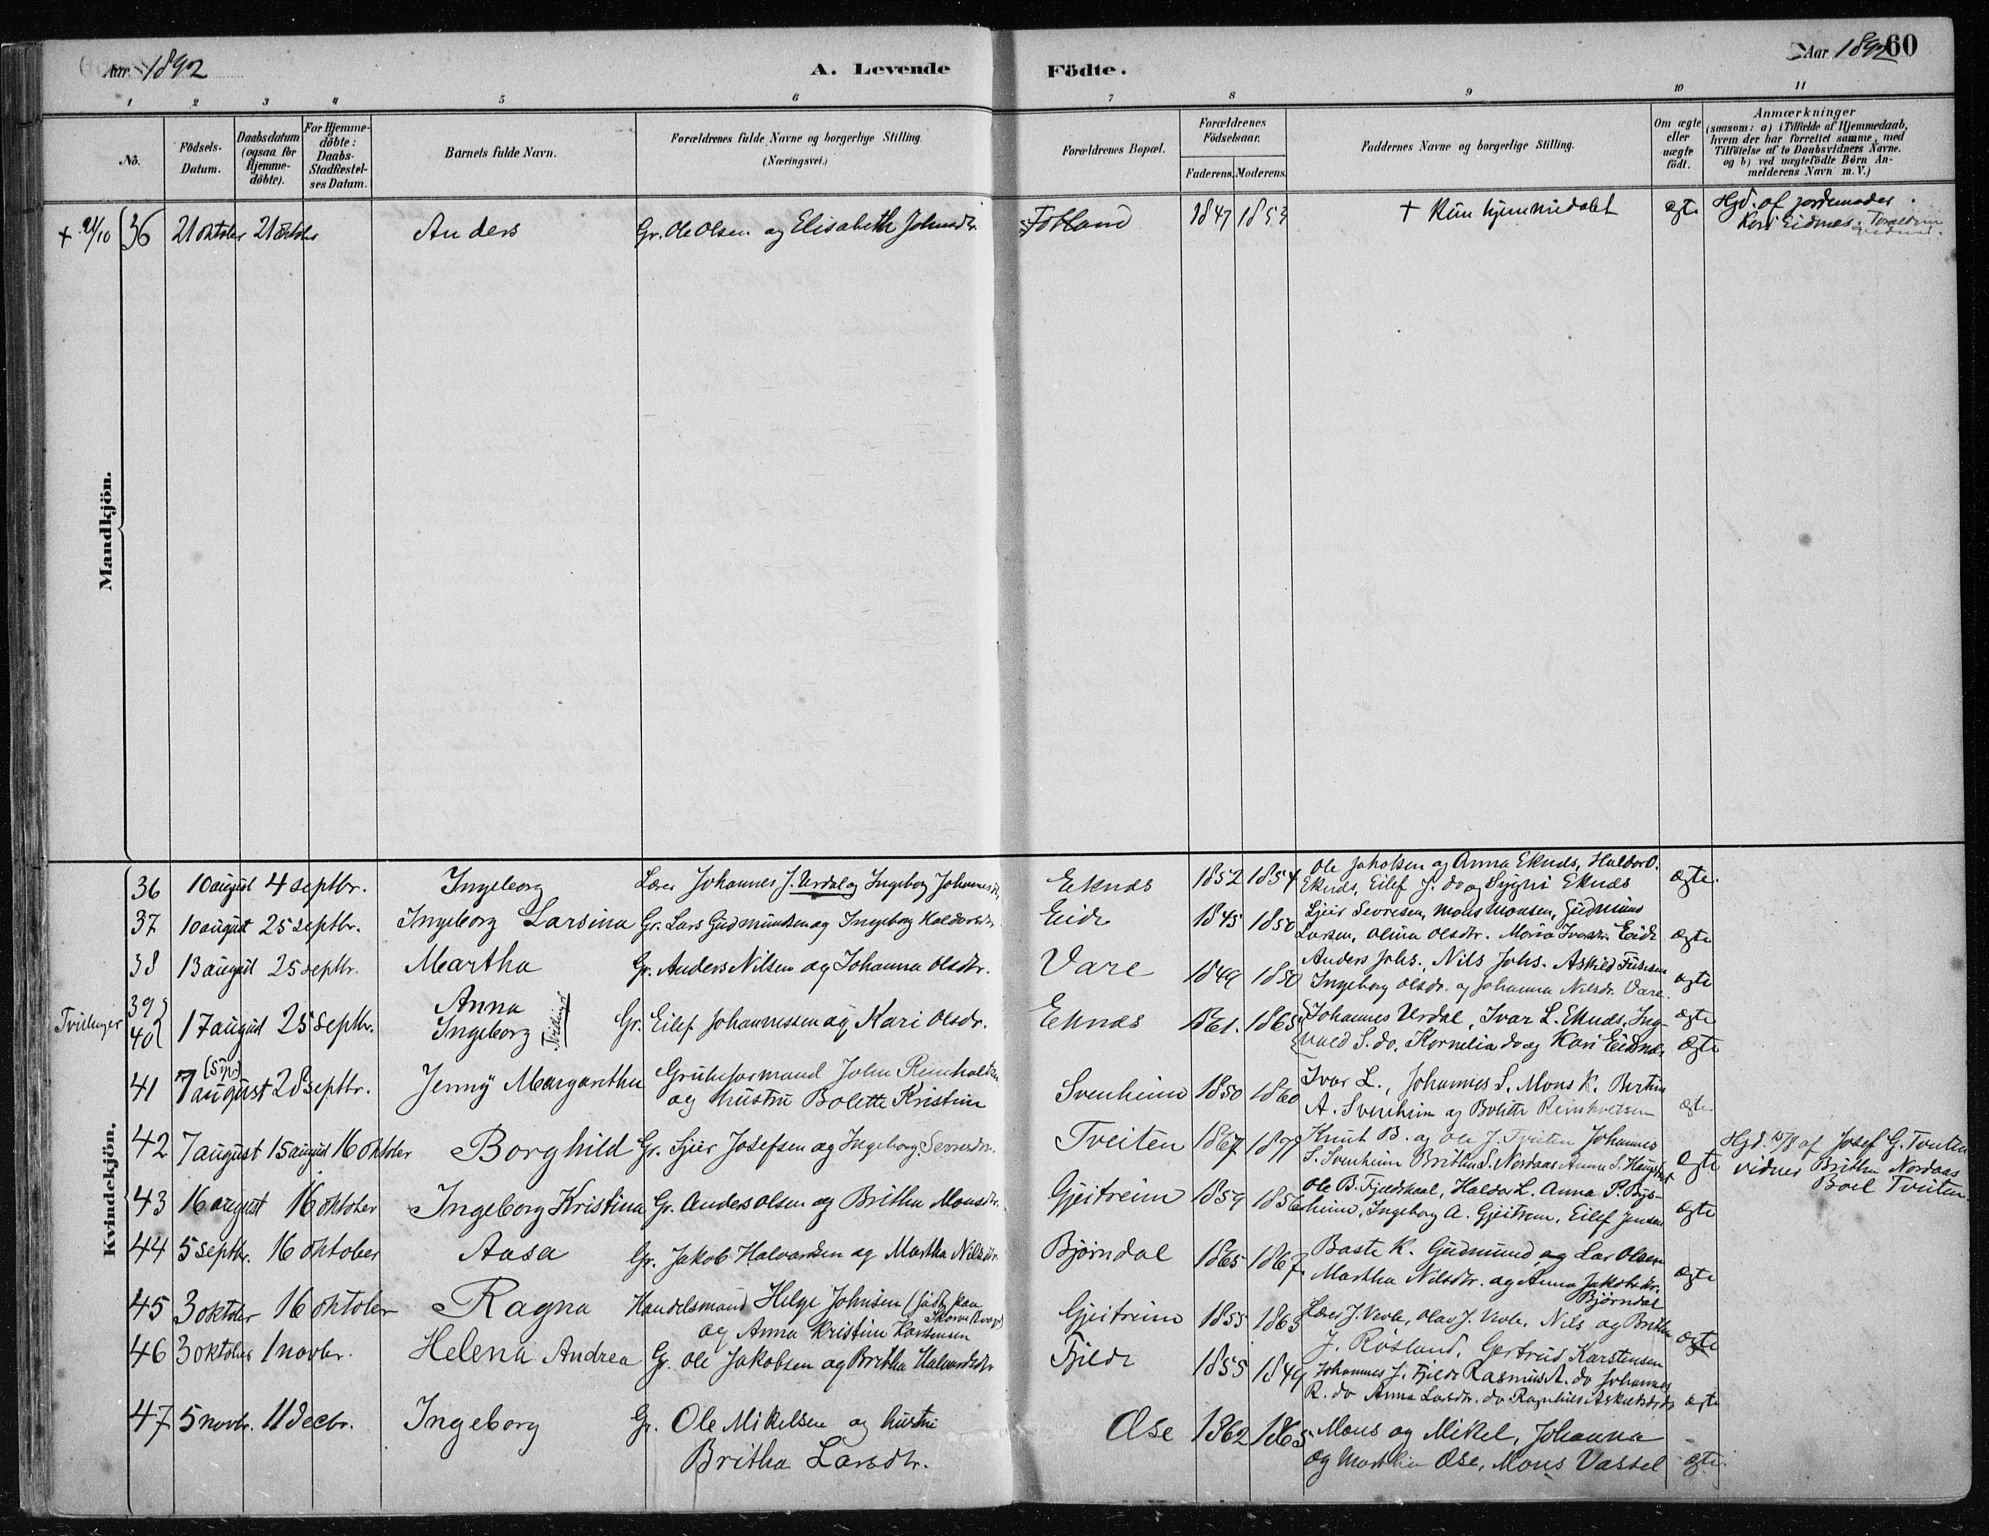 Aar 1892
A. Levende Födte.
Aar 1892 60
1 2 3 4 5 6 7 8 9 10 11
No.
Födsels-Datum.
Daabsdatum (ogsaa for Hjemme-döbte).
For Hjemme-döbte: Daabs-Stadfæstel-ses Datum.
Barnets fulde Navn.
Forældrenes fulde Navne og borgerlige Stilling. (Næringsvei.)
Forældrenes Bopæl.
Forældrenes Födselsaar.
Faderens. Moderens.
Faddernes Navne og borgerlige Stilling.
Om ægte eller uægte födt.
Anmærkninger
(saasom: a) i Tilfælde af Hjemmedaab,
hvem der har forrettet samme, med
Tilföielse af to Daabsvidners Navne,
og b) ved uægtefödte Börn An-
melderens Navn m. V.)
Mandkjön.
+ 21/10 36 21 oktober 21 oktober Anders Gr. Ole Olsen og Elisabeth Johnsdr. Fosland 1847 1853 + Kun hjemmedøbt ægte Hjd. af jordemoder
Kari Eidnes.
Kvindekjön.
36 10 august 4 septbr. Ingeborg Lærer Johannes J. Urdal og Ingeborg Johannesdr. Eknes 1852 1854 Ole Jakobsen og Anna Eknes, Haldor O.
Eknes, Eilef J. do og Sygni Eknes ægte.
37 10 august 25 septbr. Ingeborg Larsina Gr. Lars Gudmundsen og Ingeborg Haldorsdr. Eide 1845 1850 Sjur Sevresen, Mons Monsen, Gudmund
Larsen, Olina Olsdtr. Maria Ivarsdr. Eide ægte
38 13 august 25 septbr. Martha Gr. Anders Nilsen og Johanna Olsdtr. Vare 1849 1850 Anders Johs., Nils Johs. Askild
Ingeborg Olsdr. og Johanna Nilsdr. Vare. ægte
Tvillinger 39 40 17 august 25 septbr. Anna Ingeborg Tvillinger Gr. Eilef Johannessen og Kari Olsdr. Eknes 1861. 1865 Johannes Urdal, Ivar L. Eknes, Ing-
vald S. do, Kornelia do og Kari Eidsnes ægte ægte
41 7 august 28 septbr. Jenny Margaretha Grubeformand John Reinholtsen
og hustru Bolette Kristine Svenheim 1850 1860 Ivar L., Johannes S. Mons K. Bertha
A. Svenheim og Bolette Reinholtsen ægte
42 7 august 15 august 16 oktober Borghild Gr. Sjur Josefsen og Ingeborg Sevresdr. Tveiten 1867 1871 Knut B. og Ole J. Tveiten Johannes
S. Svenheim Britha S. Nordaas Anna S. ægte Hjd. 15/8 af Josef G. Tveiten
vidner Britha Nordaas
Boel Tveiten
43 16 august 16 oktober Ingeborg Kristina Gr. Anders Olsen og Britha Monsdr. Gjeitreim 1859 1856 Ole B. Fjeldskaal, Haldor L. Anna P. Bys-
heim, Ingeborg A. Gjeitreim, Eilef Jensen ægte
44 5 septbr. 16 oktober Aasa Gr. Jakob Halvardsen og Martha Nilsdtr. Bjørndal 1865 1867 Baste K. Gudmund og Lars Olsen
Martha Nilsdtr. og Anna Jakobsdr.
Bjørndal ægte
45 3 oktober 16 oktober Ragna Handelsmand Helge Johnsen (født paa
og Anna Kristine Karstensen Gjeitreim 1855 1863 Lærer J. Vevle, Olav J. Vevle, Nils og Britha
J. Røsland, Gertrud Karstensen ægte
46 3 oktober 1 novbr. Helena Andrea Gr. Ole Jakobsen og Britha Halvardsdr. Fjelde 1855 1849 Johannes J. Fjelde Rasmus A. do Johannes
R. do Anna Larsdr. do Ragnhild Askildsdr. do ægte
47 5 novbr. 11 decbr. Ingeborg Gr. Ole Mikelsen og hustru
Britha Larsdtr. Øse 1862 1865 Mons og Mikel, Johanna
og Martha Øse, Mons Vassel ægte